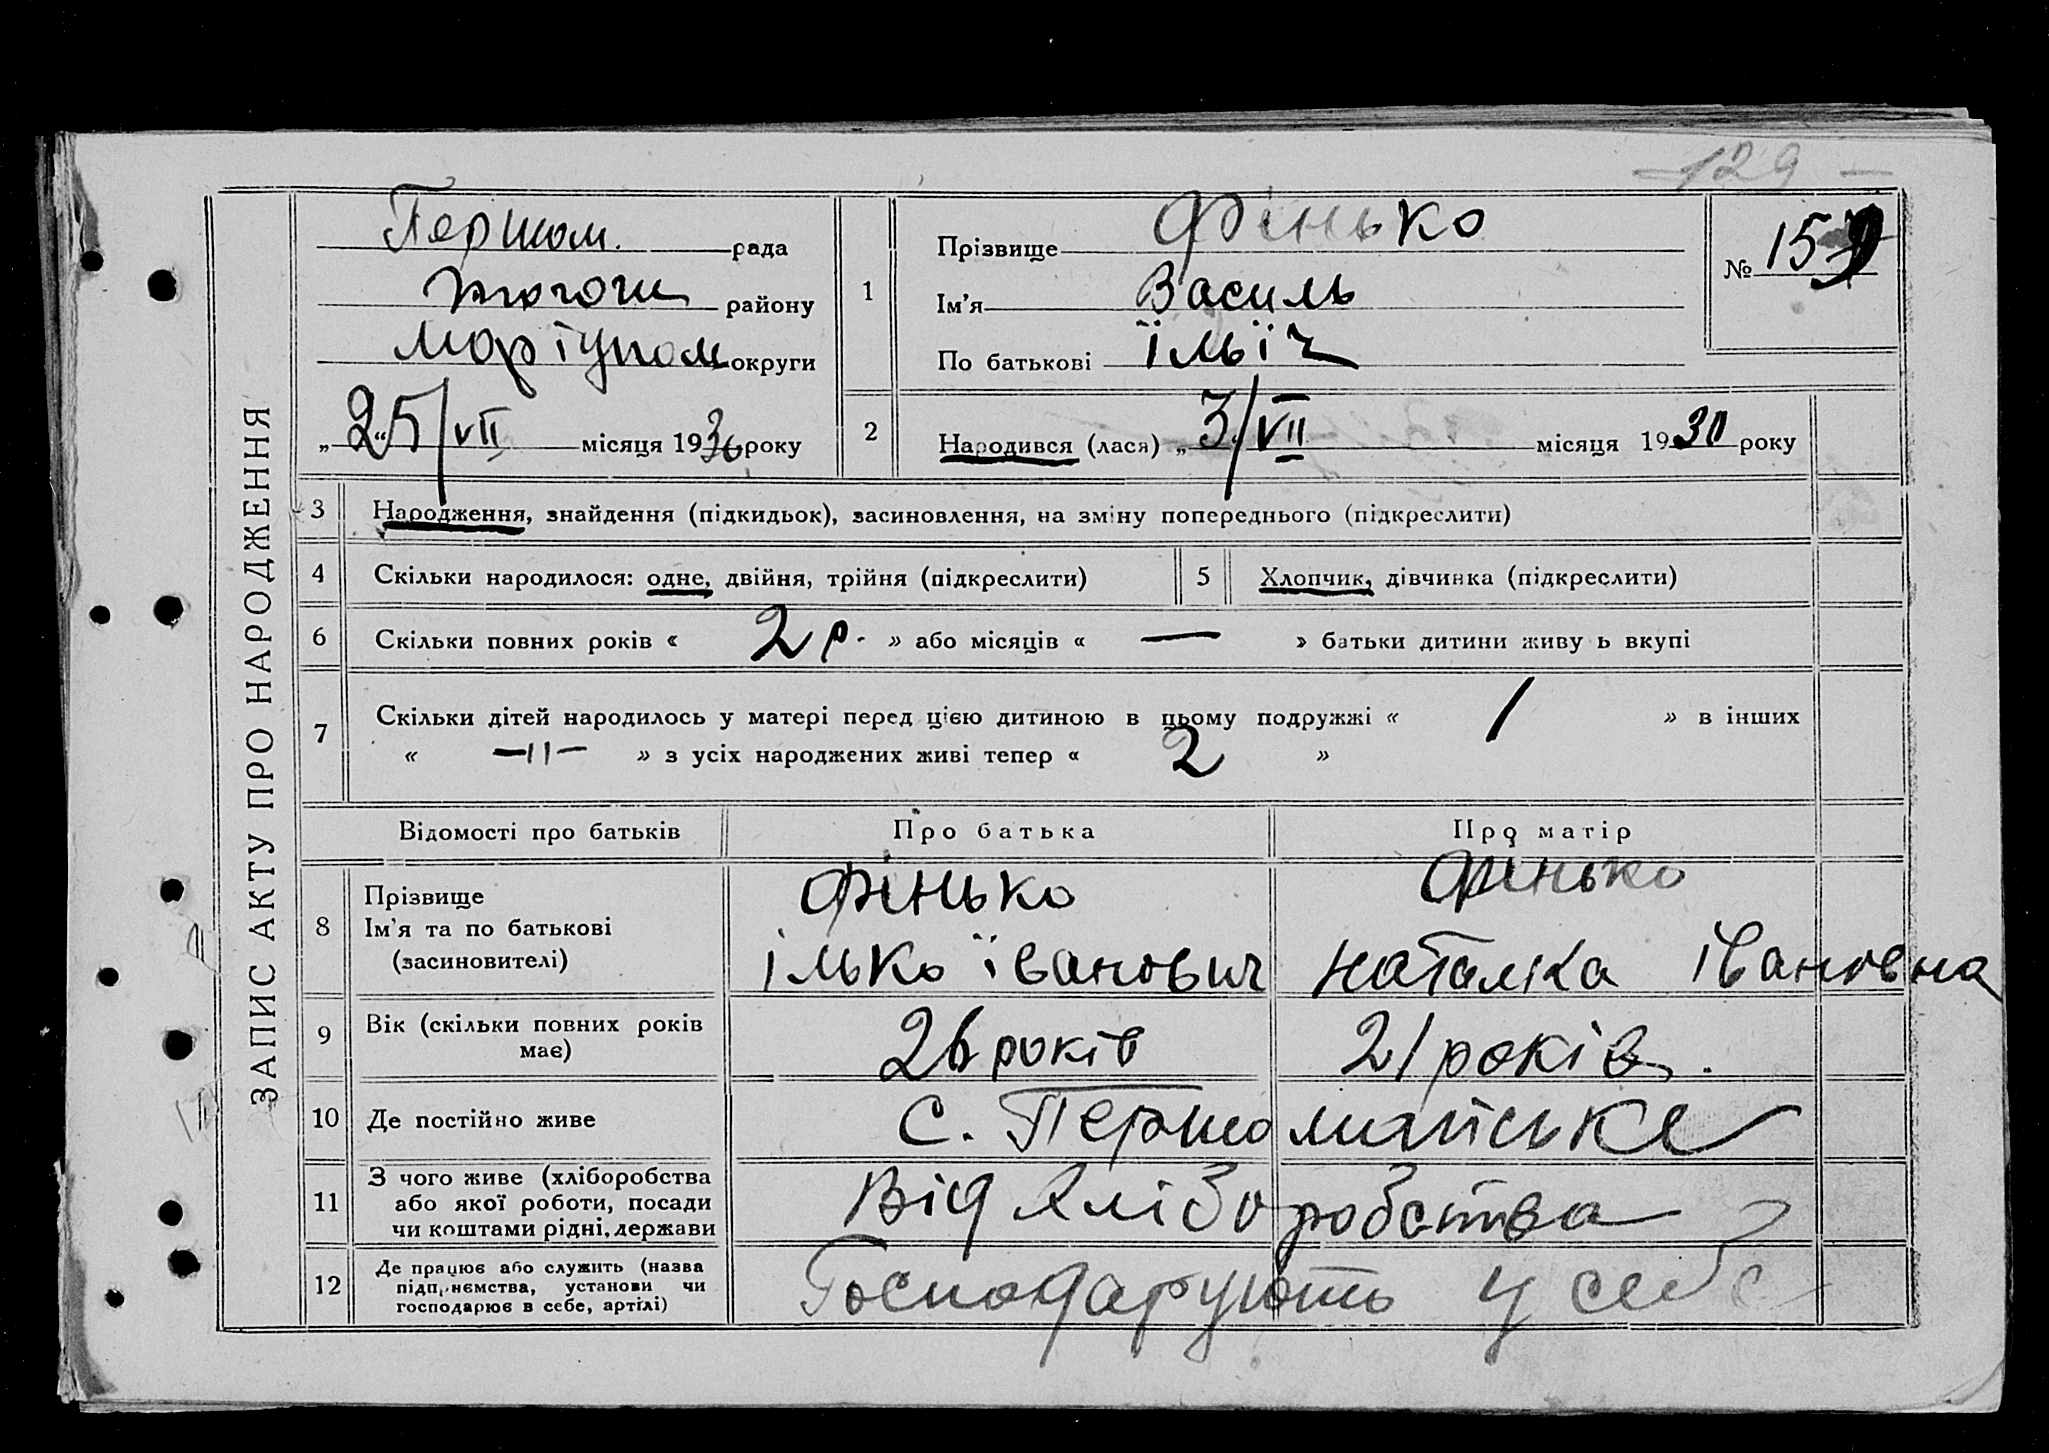 129 —
ЗАПИС АКТУ ПРО НАРОДЖЕННЯ
Першом. рада
району
Маріупом округи
„ 25/VII місяця 1930 року
1
Прізвище Фінько
Ім'я Василь
По батькові Їльїч
№ 159
2
Народився (лася) „ 3/VII місяця 1930 року
3 Народження, знайдення (підкидьок), засиновлення, на зміну попереднього (підкреслити)
4 Скільки народилося: одне, двійня, трійня (підкреслити) 5 Хлопчик, дівчинка (підкреслити)
6 Скільки повних років « 2 р. » або місяців « — » батьки дитини живу ь вкупі
7 Скільки дітей народилось у матері перед цією дитиною в цьому подружжі « 1 » в інших
« —11— » з усіх народжених живі тепер « 2 »
Відомості про батьків Про батька Про матір
8 Прізвище Фінько Фінько
Ім'я та по батькові
(засиновителі) Ілько Їванович Наталка Івановна
9 Вік (скільки повних років має) 26 років 21 років.
10 Де постійно живе с. Першомайське
11 З чого живе (хліборобства
або якої роботи, посади
чи коштами рідні, держави Від хліборобства
12 Де працює або служить (назва
підприємства, установи чи
господарює в себе, артілі) Господарують у себе